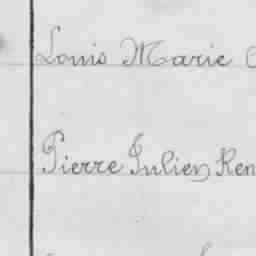 Louis Marie
Pierre Julien Ren